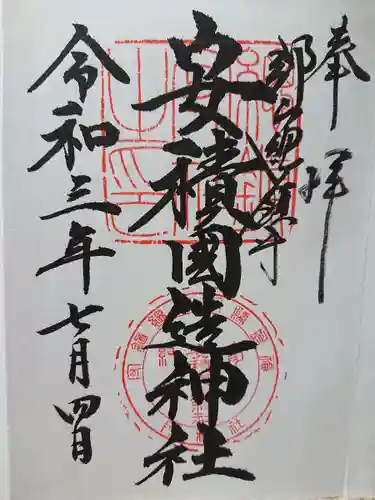 奉拝
郡山総鎮守
安積國造神社
令和三年七月四日